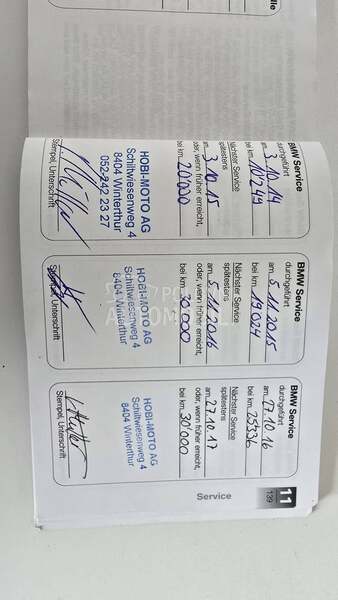 BMW Service
durchgeführt
am 3.10.14
bei km 10'249
Nächster Service
spätestens
am 3.10.15
oder, wenn früher erreicht,
bei km 20'000
HOBI-MOTO AG
Schiltwiesenweg 4
8404 Winterthur
052-242 23 27
Stempel, Unterschrift
BMW Service
durchgeführt
am 5.11.2015
bei km 19'024
Nächster Service
spätestens
am 5.11.2016
oder, wenn früher erreicht,
bei km 30'000
HOBI-MOTO AG
Schiltwiesenweg 4
8404 Winterthur
Stempel, Unterschrift
BMW Service
durchgeführt
am 27.10.16
bei km 25536
Nächster Service
spätestens
am 27.10.17
oder, wenn früher erreicht,
bei km 30'000
HOBI-MOTO AG
Schiltwiesenweg 4
8404 Winterthur
Stempel, Unterschrift
11
139
Service